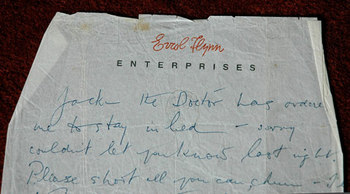 Errol Flynn
ENTERPRISES
Jack the Doctor has ordere
me to stay in bed - sorry
couldn't let you know last night
Please shoot all you can